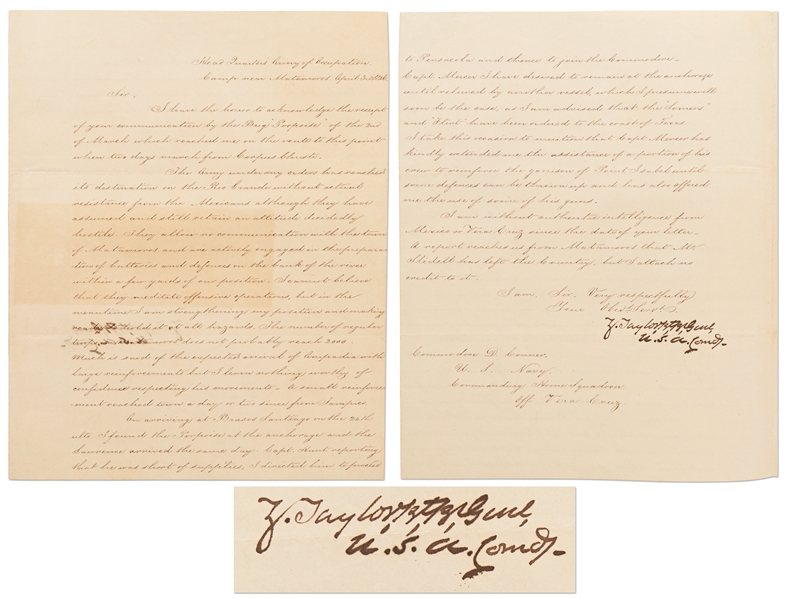 Head Quarters Army of Occupation
Camp near Matamoros April 2nd 1846
Sir,
I have the honor to acknowledge the receipt
of your communication by the Brig "Porpoise" of the 2nd
of March which reached me on the route to this point
when two days march from Corpus Christi.
The Army under my orders has reached
its destination on the Rio Grande without actual
resistance from the Mexicans although they have
assumed and still retain an attitude decidedly
hostile. They allow no communication with the town
of Matamoros and are actively engaged in the prepara-
tion of batteries and defences on the bank of the river
within a few yards of our position. I cannot believe
that they meditate offensive operations, but in the
meantime I am strengthening my position and making
hold it at all hazards. The number of regular
troops does not probably reach 2000
Much is said of the expected arrival of Ampudia with
large reinforcements but I know nothing worthy of
confidence respecting his movements. A small reinforce-
ment reached town a day or two since from Tampico
On arriving at Brasos Santiago on the 24th
ulto. I found the Porpoise at the anchorage and the
Lawrence arrived the same day. Capt. Hunt reporting
that he was short of supplies, I directed him to proceed
to Pensacola and thence to join the Commodore.
Capt Mercer I have desired to remain at the anchorage
until relieved by another vessel, which I presume will
soon be the case, as I am advised that the "Somers"
and "Flirt" have been ordered to the coast of Texas
I take this occasion to mention that Capt Mercer has
kindly extended me the assistance of a portion of his
crew to reinforce the garrison of Point Isabel until
some defences can be thrown up and has also offered
me the use of some of his guns.
I am without authentic intelligence from
Mexico or Vera Cruz since the date of your letter.
A report reaches us from Matamoros that Mr.
Slidell has left the Country, but I attach no
credit to it.
I am, Sir, Very respectfully
Your Obdt Servt
Z. Taylor, Bt. Br. Genl,
U. S. A. Comd.
Commodore D. Conner,
U. S. Navy,
Commanding Home Squadron
Off Vera Cruz
Z. Taylor, Bt. Br. Genl,
U. S. A. Comd.